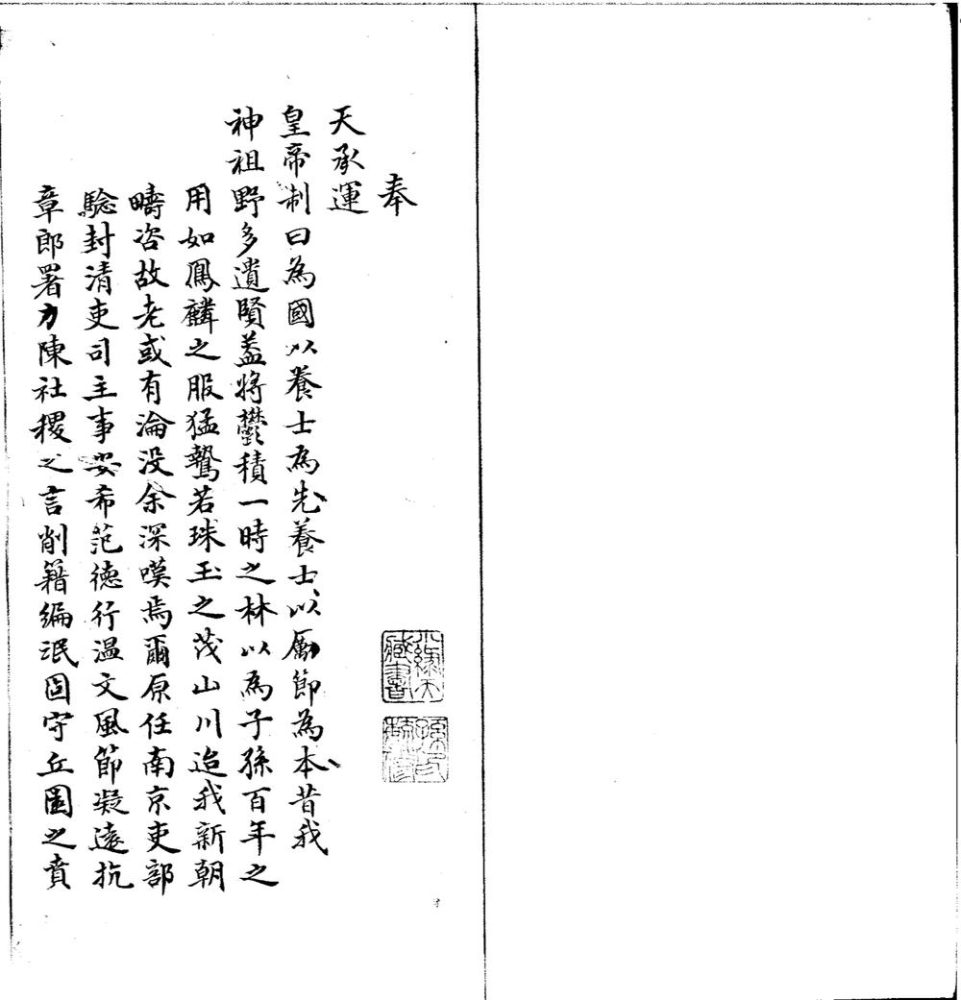 奉
天承運
皇帝制曰為國以養士為先養士以厲節為本昔我
神祖野多遺賢蓋將鬱積一時之林以為子孫百年之
用如鳳麟之服猛鷙若珠玉之茂山川迨我新朝
疇咨故老或有淪没余深嘆焉爾原任南京吏部
驗封清吏司主事安希范德行温文風節凝遠抗
章郎署力陳社稷之言削籍編氓固守丘園之賁